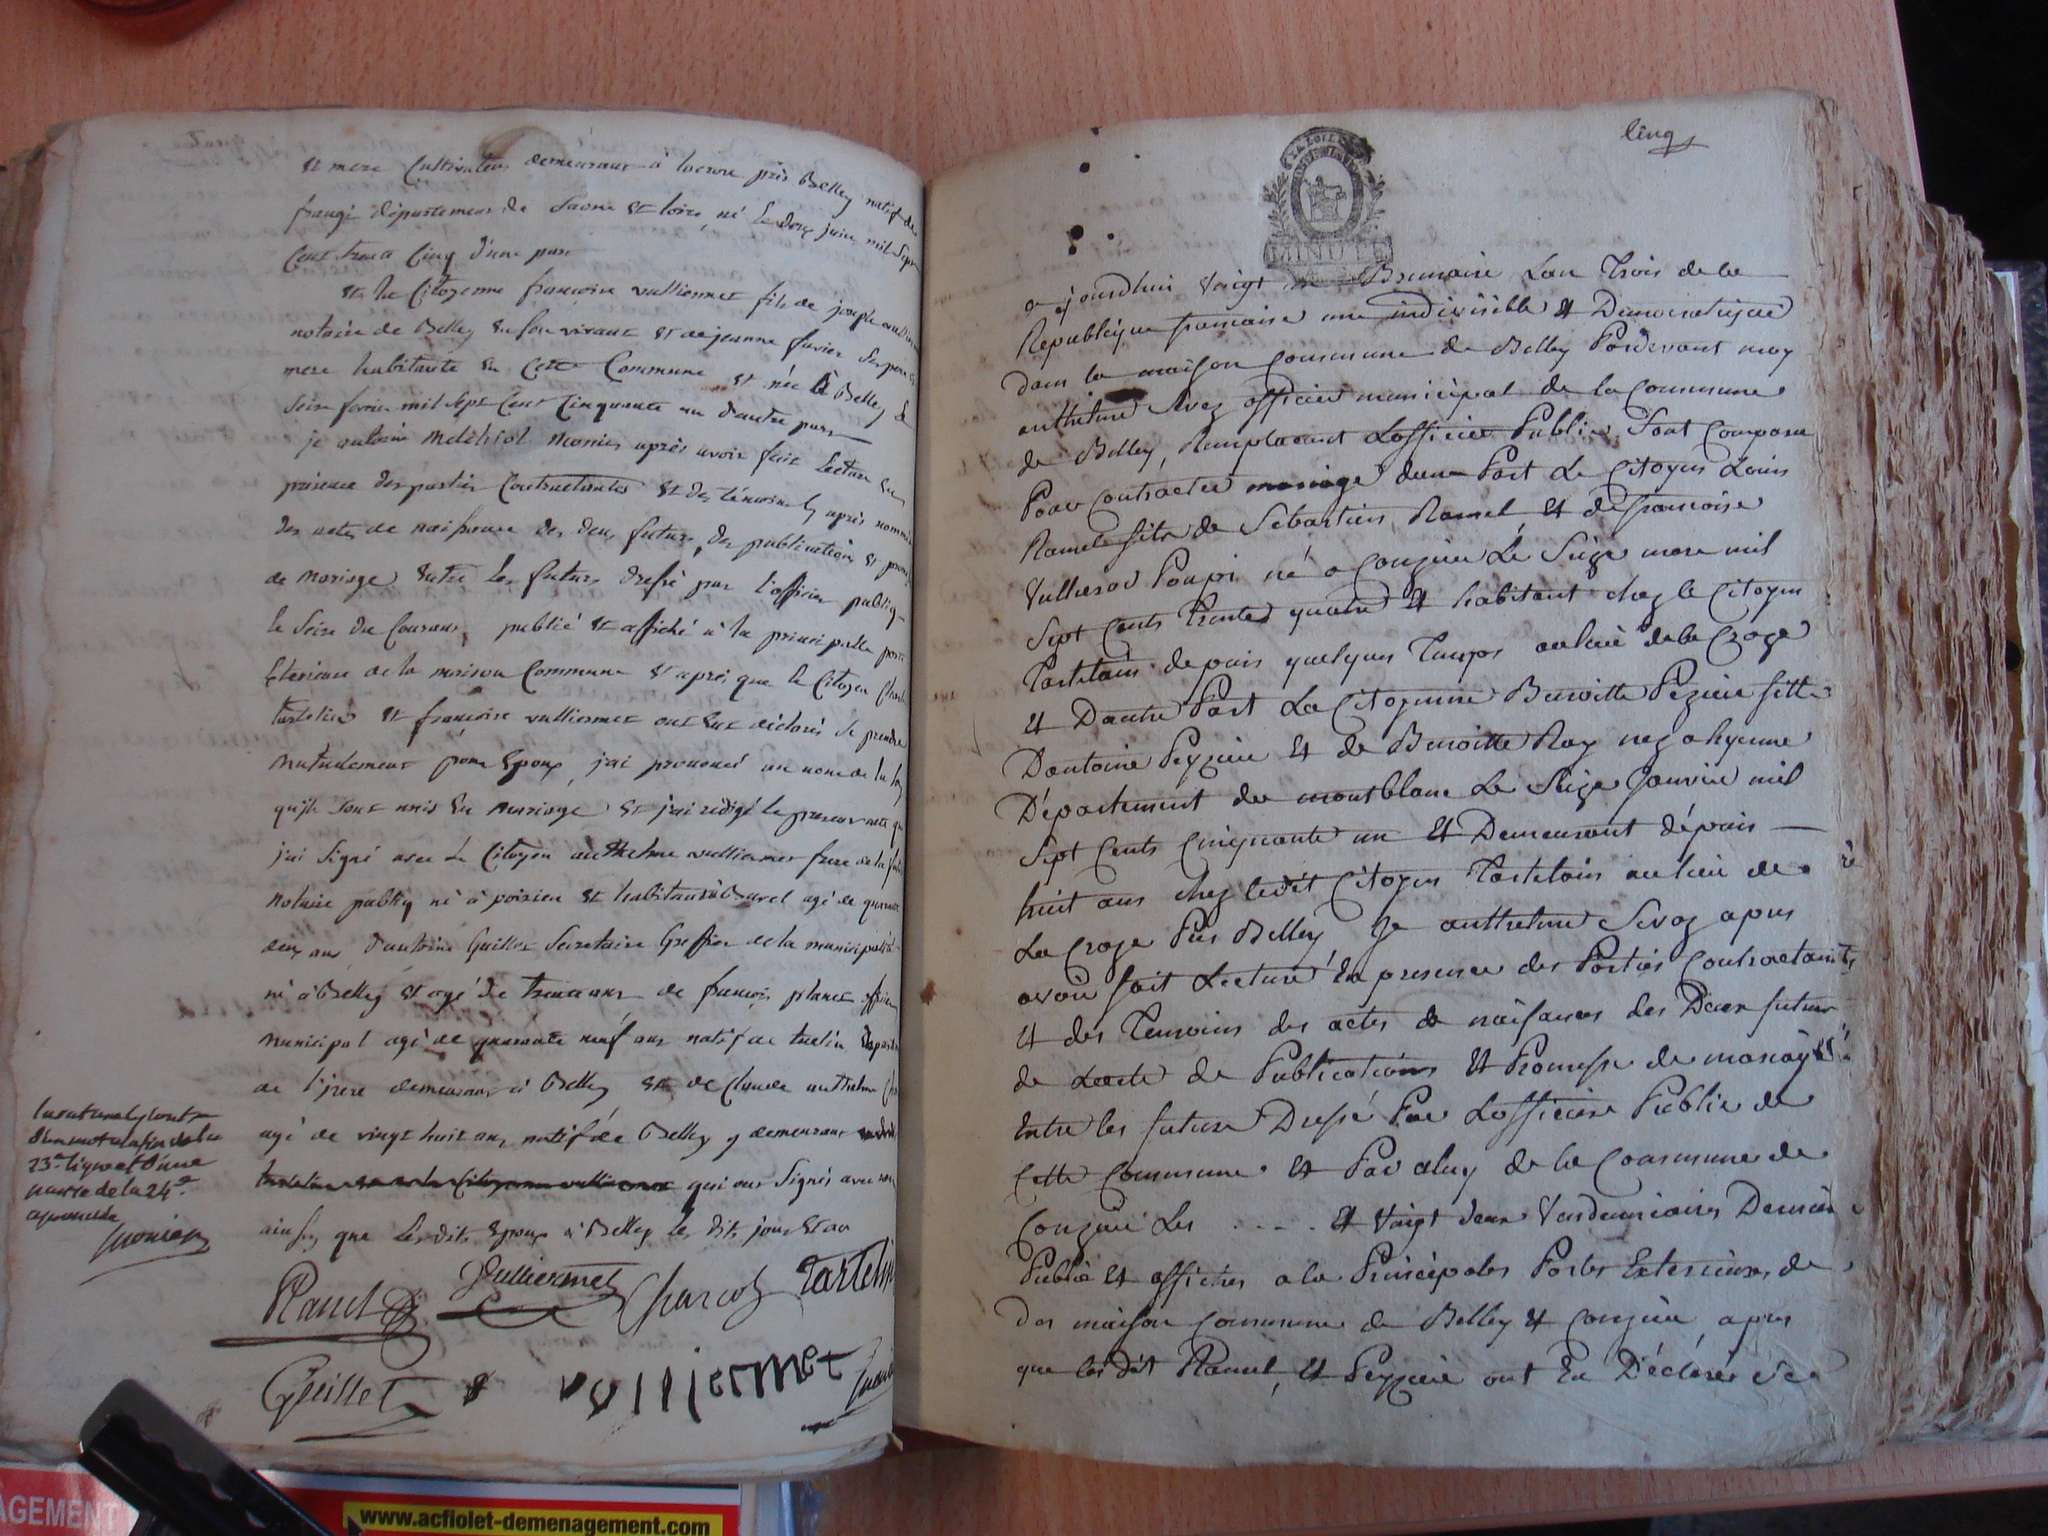 et mere Cultivateur demeurant à lacrose près Belley natif de
frangi département de Saone et loire, né le douze juin mil Sept
Cent trente Cinq d'une part
et la Citoyenne francoise vulliermet fils de joseph vulliermet
notaire de Belley en son vivant et de jeanne favier ses pere et
mere habitante en Cette Commune et née à Belley le
Seize fevrier mil Sept Cent Cinquante un d'autre part
je antoine Melchiol Monier après avoir fait lecture en
présence des parties Contractantes et des témoins cy après nommés
des actes de naissance des deux futurs, des publication et promesse
de Mariage entre les futurs dressé par l'officier publiq
le Seize du Courant, publié et affiché à la principalle porte
Exterieure de la maison Commune et après que le Citoyen Claude
tartelin et francoise vulliermet ont eut déclarés se prendre
Mutuelement pour Epoux, j'ai prononcé au nom de la loy
qu'ils sont unis en Mariage et j'ai rédigé le present acte que
j'ai Signé avec le Citoyen anthelme vulliermet frere de la
notaire publiq né à poisieu et habitant à Buvel agé de quarante
deux ans d'antoine Guillet Secretaire Greffier de la municipalité
né à Belley et agé de trente ans de francois planet officier
municipal agé de quarante neuf ans natif de tuelin
de l'izere demeurant à Belley et de Claude anthelme
agé de vingt huit ans, natif de Belley y demeurant
qui ont Signés avec nous
ainsy que les dits Epoux à Belley les dits jour et an
23e ligne et d'une
partie de la 24e
approuvée
Monier
Planet Vulliermet Charcot Tartelin
Guillet vulliermet
www.acfiolet-demenagement.com
AGEMENT
Cinq
LA LOI LE
MINUTE
a jourdhui Vaigt Brumaire Lan Trois de la
Republique francaise une indivisible et Democratique
dans la maison Commune de Belley Pardevant moy
anthelme Sevoz officier municipal de la Commune
de Belley, Remplacant Lofficier Public, Sont Comparu
Pour Contracter mariage dune Part Le Citoyen Louis
Ramel fils de Sebastien Ramel et de francoise
Vullierod Poupi né a Conzieu Le Seize mars mil
Sept Cents Trente quatre et habitant chez le Citoyen
Tartelain depuis quelques Temps au lieu de la Croze
et Dautre Part La Citoyenne Benoitte Pezieu fille
Dantoine Peyzieu et de Benoitte Roy nez a hyenne
Département du montblanc Le Seize Janvier mil
Sept Cents Cinquante un et Demeurant dépuis
huit ans chez ledit Citoyen Tartelain au lieu de
La Croze Pres Belley Je anthelme Sevoz apres
avoir fait Lecture En presence des Parties Contractantes
et des Temoins des actes de naissances des Deux futurs
de Lacte de Publications et Promesse de mariage
Entre les futurs Dressé Par Lofficier Public de
Cette Commune et Par celuy de la Commune de
Conzieu Les . . . . et Vaigt deux Vandemiaires Dernier
Publié et affiches a la Principales Portes Exterieures de
Des maison Commune de Belley et Conzieu, apres
que les dit Ramel, et Peyzieu ont Eu Déclarés de